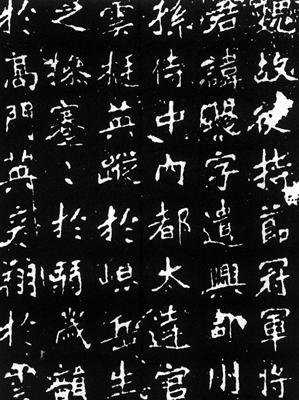 魏故使持節冠軍將
君諱颺字遺興司州
孫侍中內都大達官
雲挺英蹤於岳生
之操謇〻於弱歲
於高門英彥翔於雲